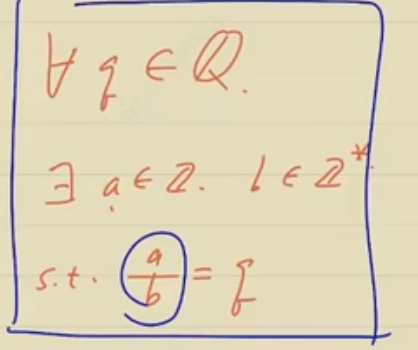 ∀ q ∈ ℚ.
∃ a ∈ ℤ. b ∈ ℤ*
s.t. a/b = q